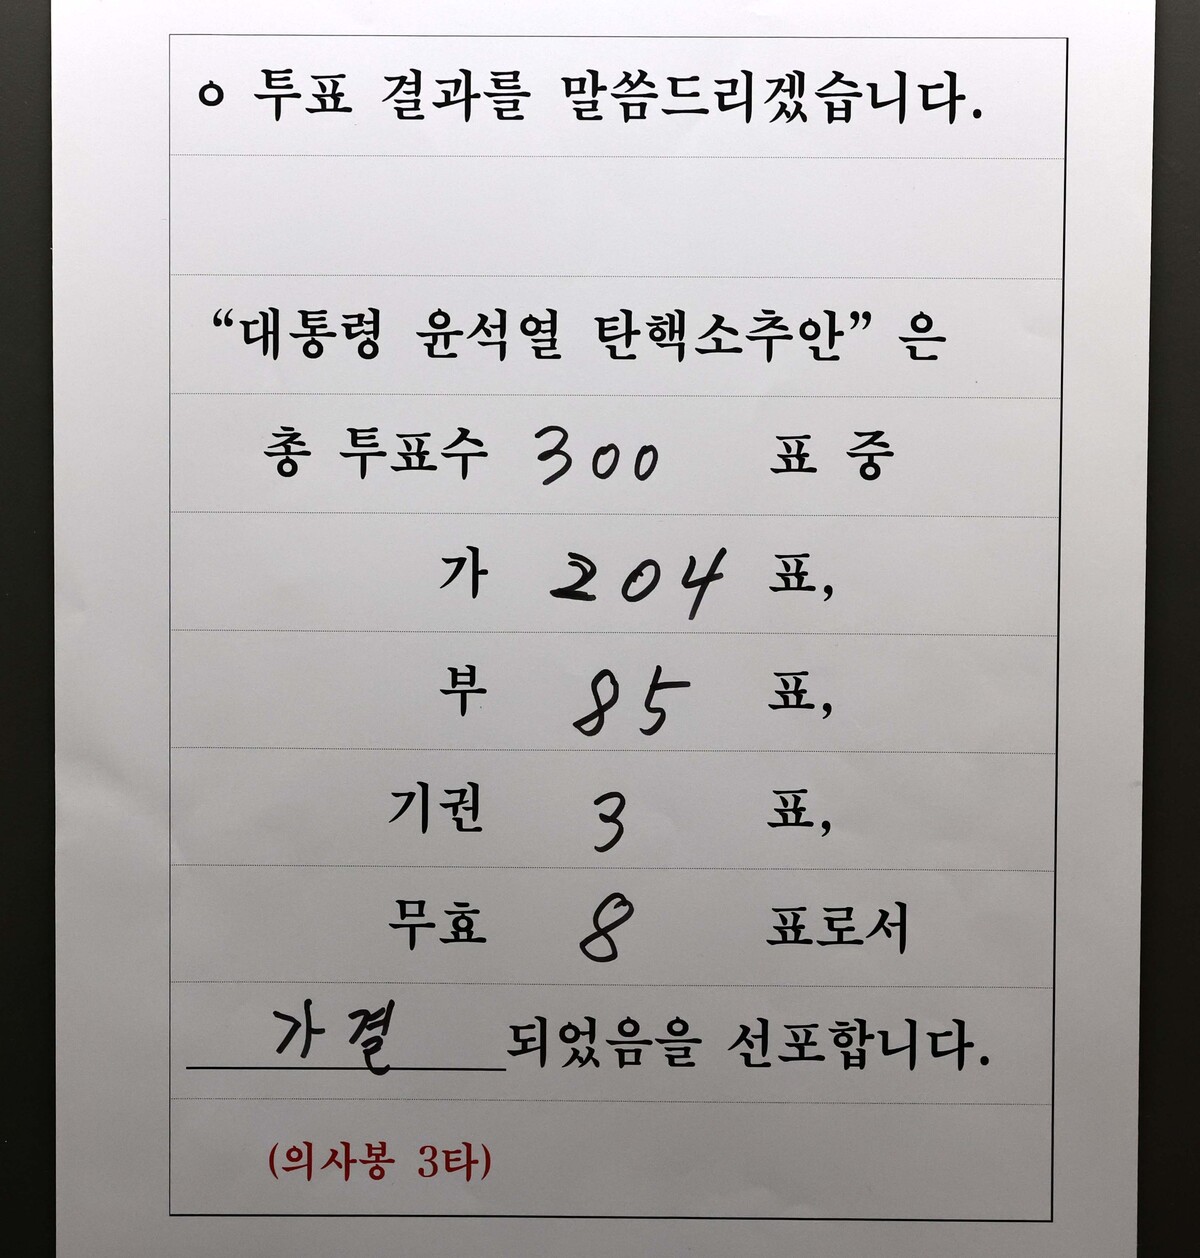 ㅇ 투표 결과를 말씀드리겠습니다.
“대통령 윤석열 탄핵소추안” 은
총 투표수 300 표 중
가 204 표,
부 85 표,
기권 3 표,
무효 8 표로서
가결 되었음을 선포합니다.
(의사봉 3타)